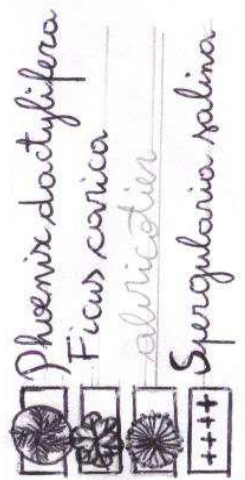 Phoenix dactylifera
Ficus carica
abricotier
Spergularia salina